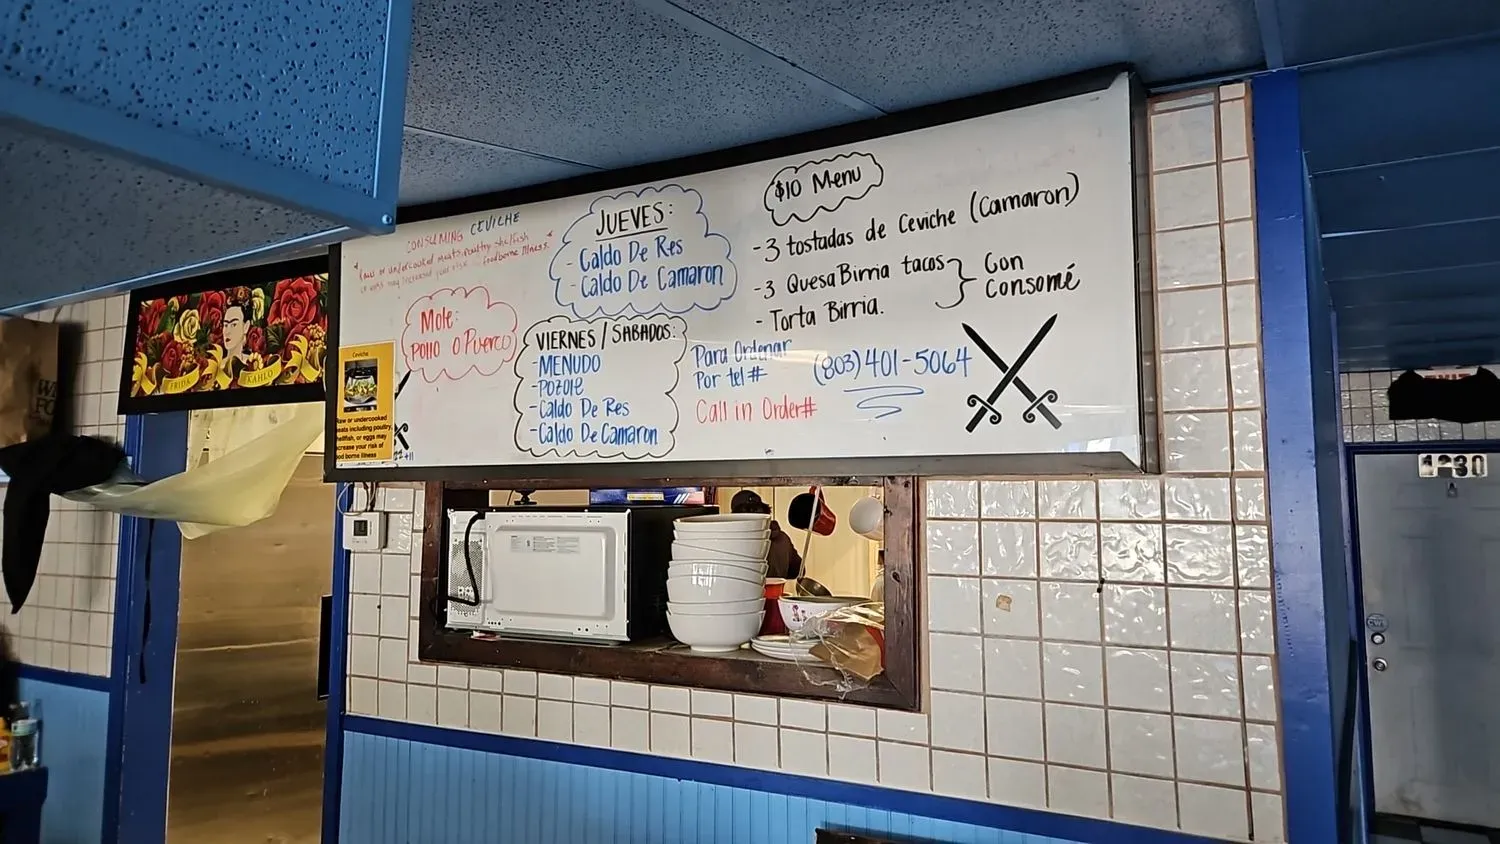 CONSUMING CEVILHE
raw or undercooked meats, poultry shellfish
may increased your risk foodborne Illness.
JUEVES:
- Caldo De Res
- Caldo De Camaron
$10 Menu
- 3 tostadas de Ceviche (Camaron)
- 3 QuesaBirria tacos
- Torta Birria.
Con
Consomé
Mole:
Pollo o Puerco
VIERNES / SABADOS:
- MENUDO
- Pozole
- Caldo De Res
- Caldo De Camaron
Para Ordenar
Por tel #
(803) 401-5064
Call in Order#
FRIDA KAHLO
Ceviche
Raw or undercooked
meats including poultry,
shellfish, or eggs may
increase your risk of
food borne illness